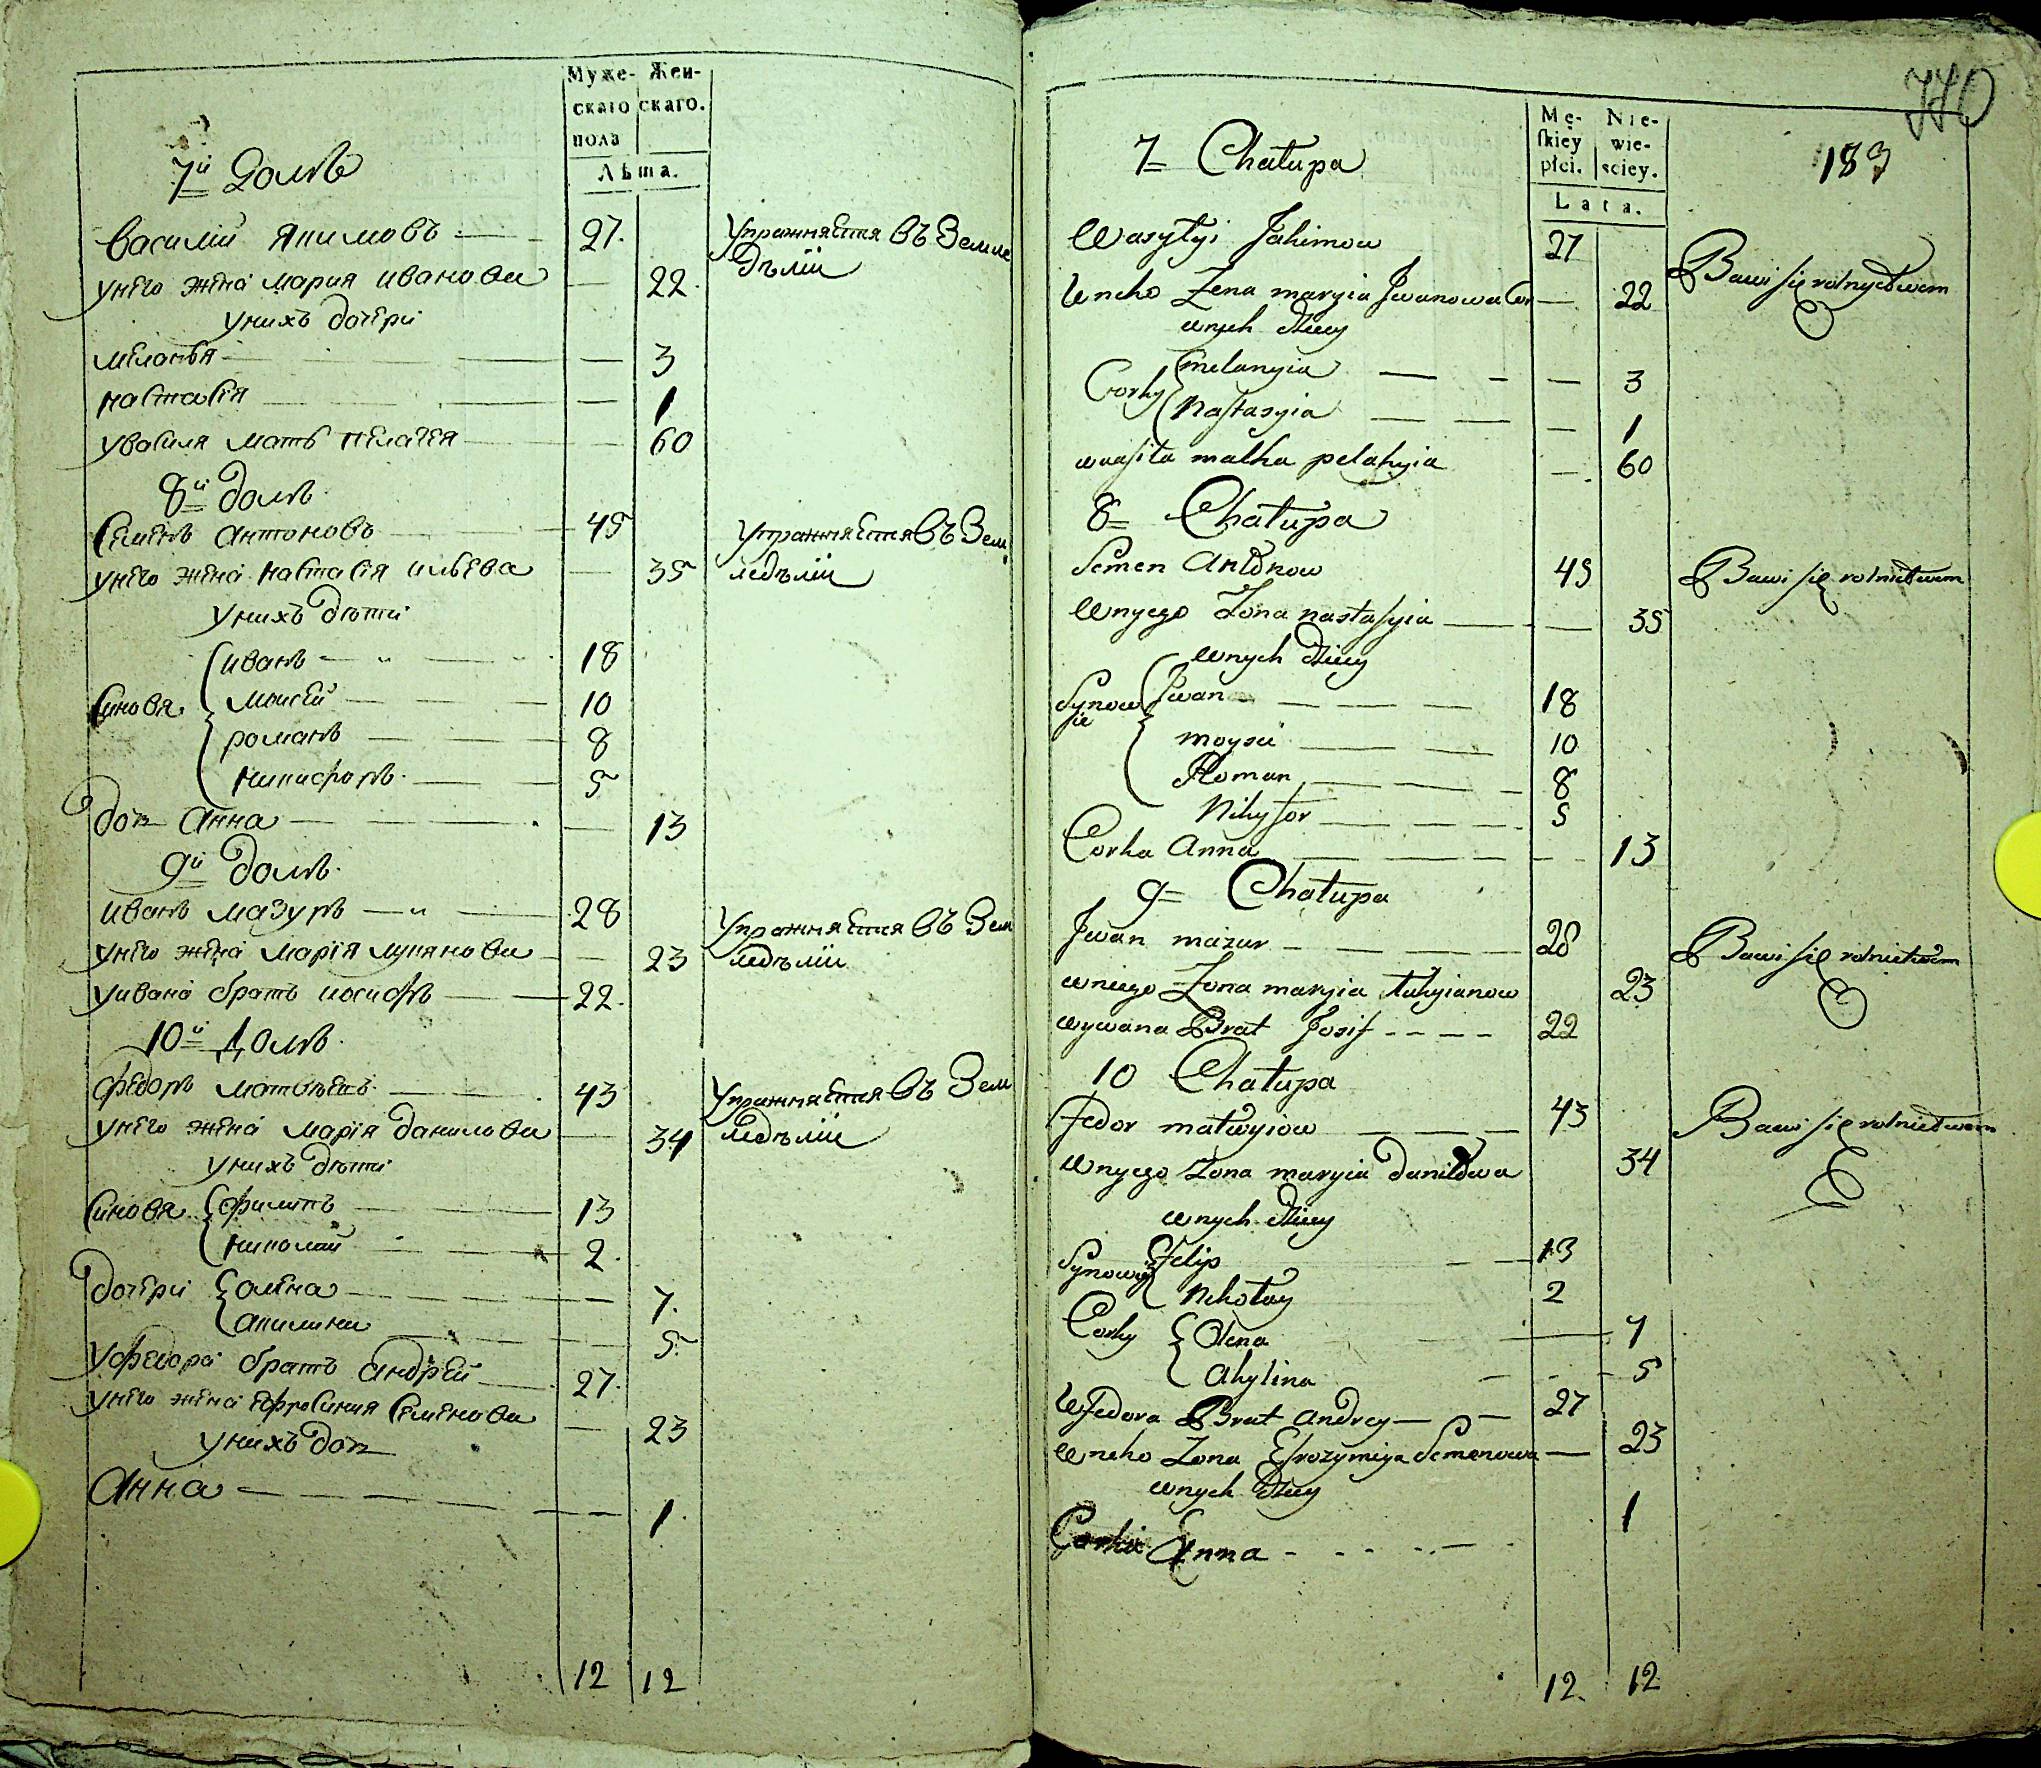 Муже- Жен-
скаго скаго.
пола
Лѣта.
7й Домъ
Василий Якимовъ 27. Упражняется въ Землѣ
унего жена мария иванова — 22. дѣлiи
унихъ дочери
меланья — 3
настасiя — 1
уВасиля мать пелагея — 60
8й домъ
Семенъ Антоновъ 45 Упражняется въ Зем
унего жена настасiя ильева — 35 ледѣлiи
унихъ дѣти
иванъ 18
Синовя моисей 10
романъ 8
никифоръ 5
дочь Анна — 13
9й домъ.
иванъ мазуръ 28 Упражняется въ Зем
унего жена марiя лукянова — 23 ледѣлiи
уивана братъ иосифъ 22.
10й Домъ.
федоръ матвѣевъ 43 Упражняется въ Зем
унего жена марiя данилова — 34 ледѣлiи
унихъ дѣти
Синовя филипъ 13
николай 2.
дочери олена — 7.
акилина — 5.
уфедора братъ андрей 27.
унего жена ефросиния Семенова — 23
унихъ дочь
Анна — 1.
12 12
770
Mę- Nie-
skiey wie-
płci. sciey.
Lata.
189
7 Chałupa
Wasylyi Jakimow 27 Bawi się rolnyctwem
Uneho Żena maryia Jwanowa Cor — 22
wnych dzieci
Corky melanyia — 3
Nastasyia — 1
wwasila matka pelahyia — 60
8 Chałupa
Semen Antonow 45 Bawi się rolnictwem
Wnyego Żona nastasyia — 35
wnych dzieci
Synowie Jwan 18
moysei 10
Roman 8
Nikyfor 5
Corka Anna — 13
9 Chałupa
Jwan mazur 28 Bawi się rolnictwem
wniego Żona maryia łukyianow 23
wywana Brat Josif 22
10 Chałupa
Fedor matwyiow 43 Bawi się rolnictwem
Wnyego Żona maryia daniłowa 34
wnych dzieci
Synowie Felip 13
Nikołay 2
Corky Olena 7
Akylina 5
Wfedora Brat Andrey 27
Wneho Żona Efrozymiya Semenowa — 23
wnych dzieci
Corka Anna 1
12. 12